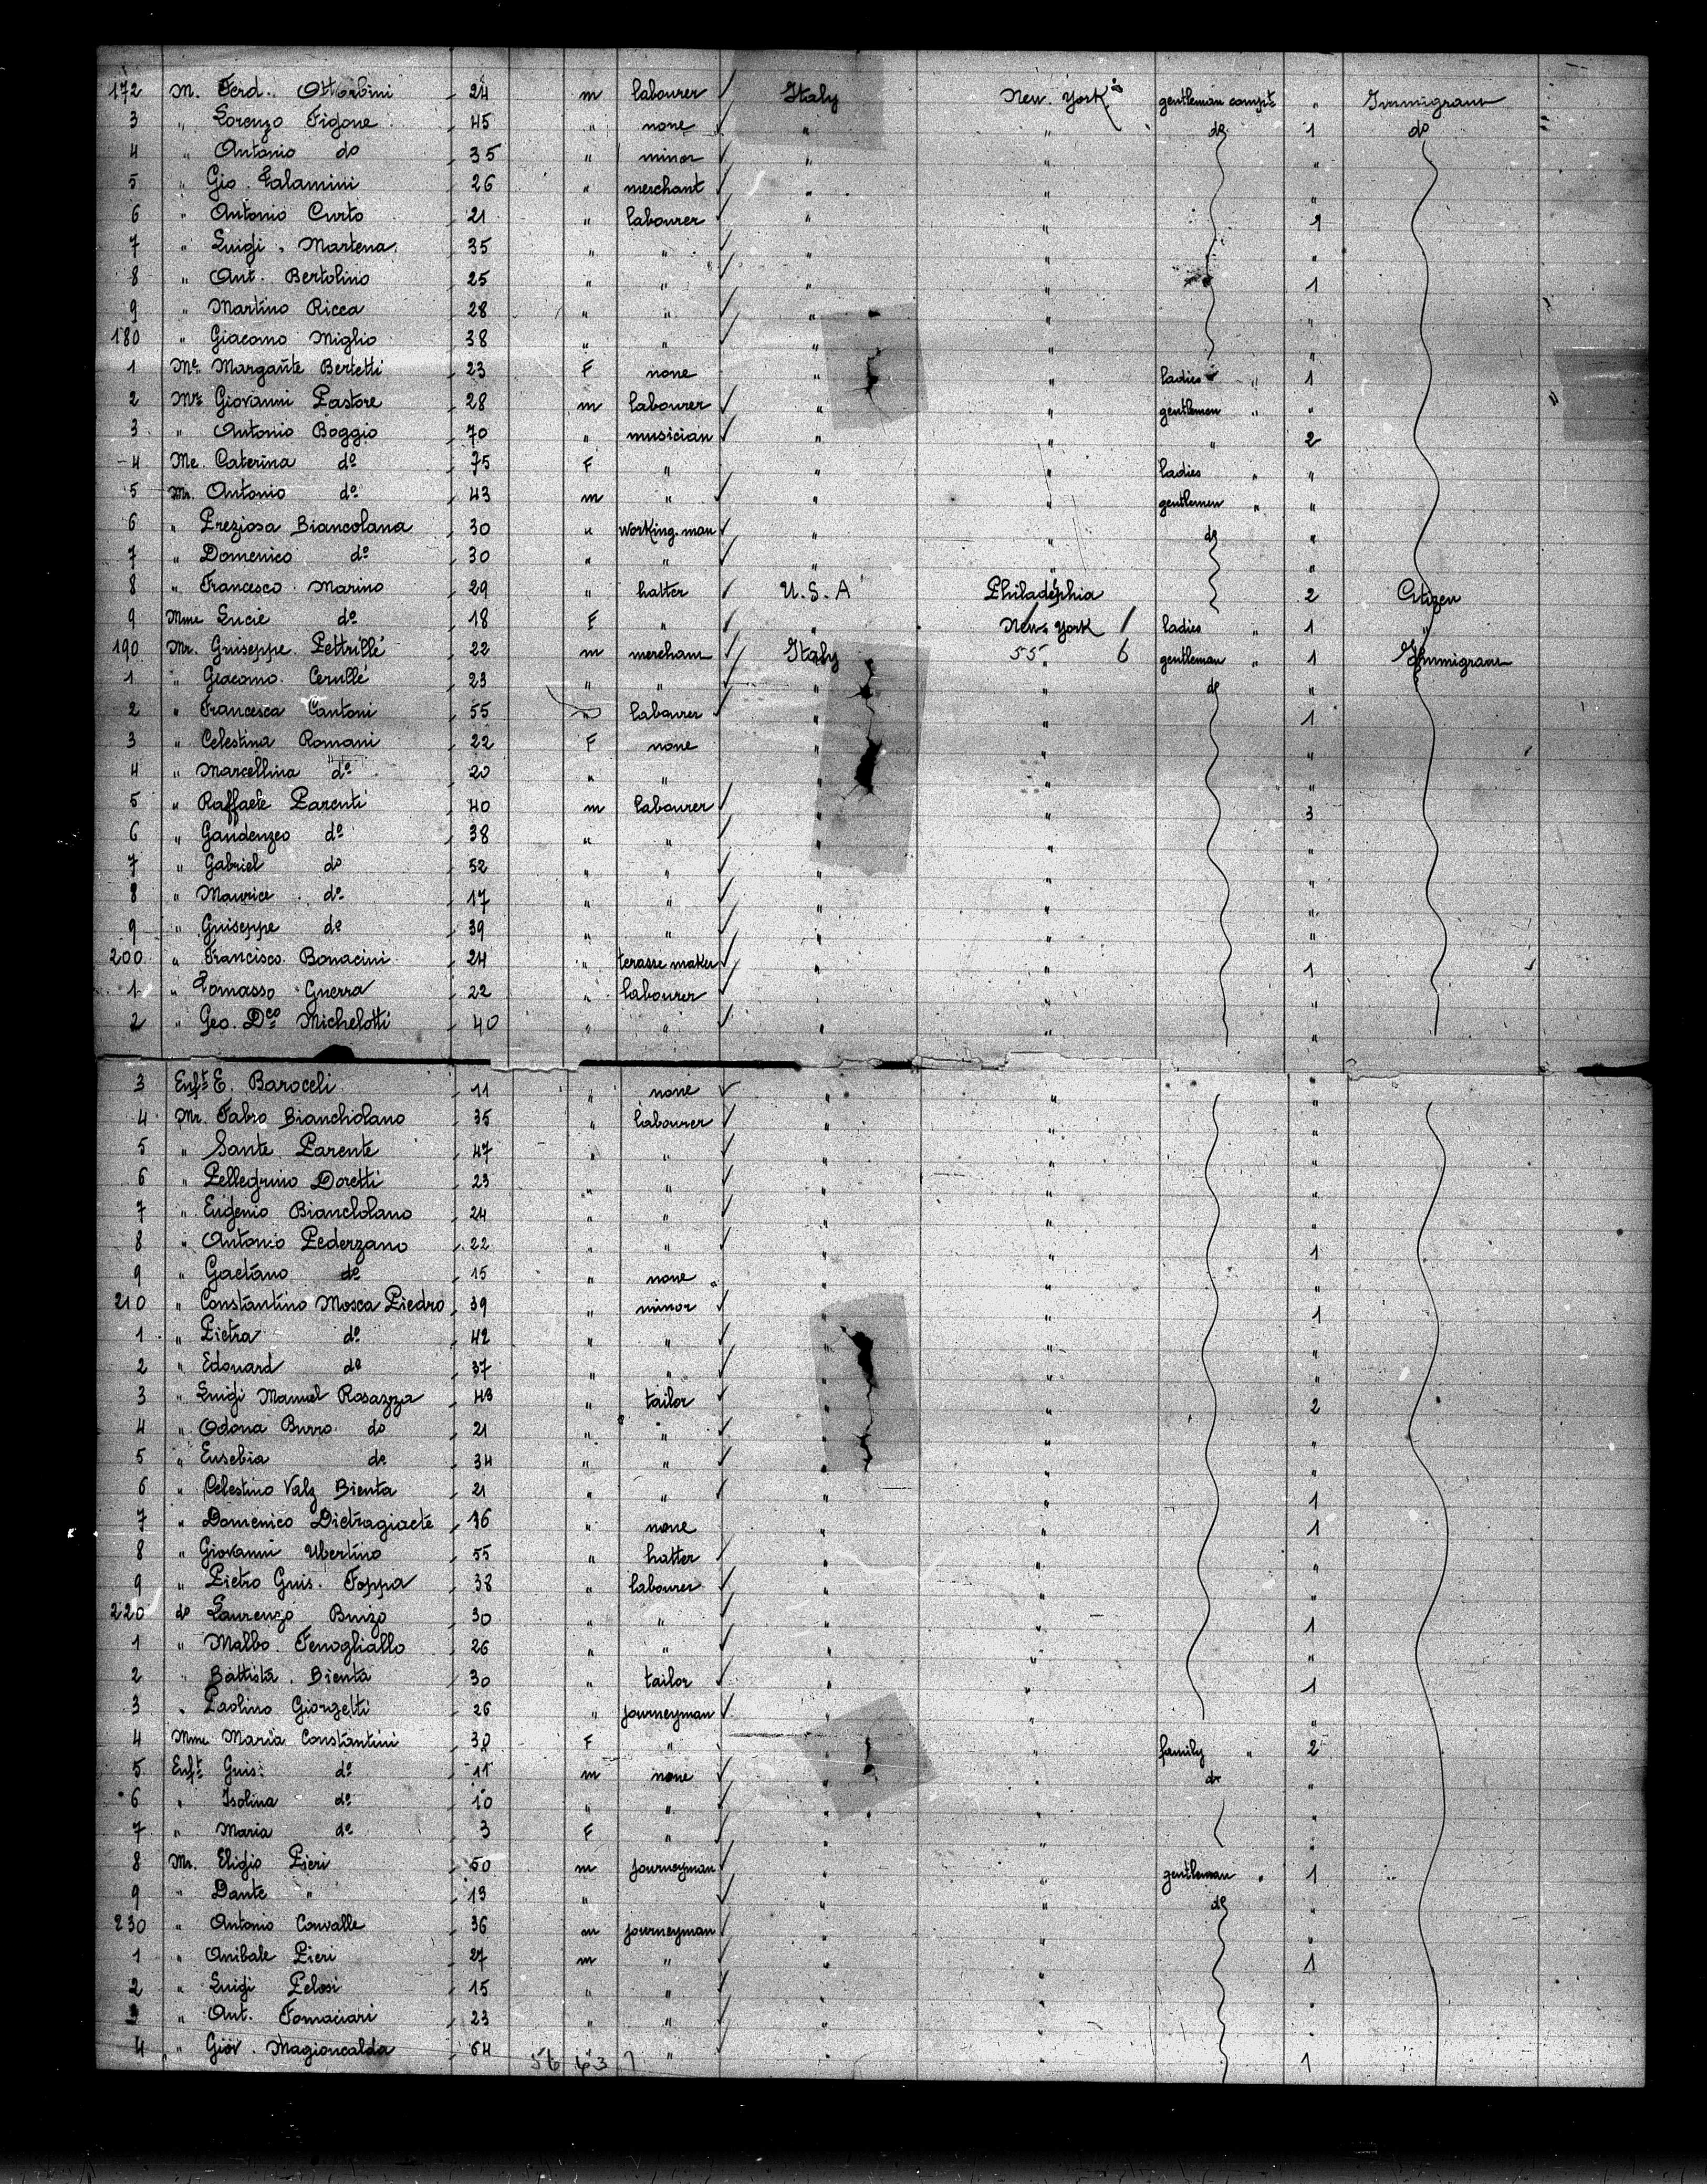 172 M. Ferd. Ottorbini 24 m labourer Italy New. York gentleman compt. " Immigrant
3 " Lorenzo Figone 45 " none " " do 1 do
4 " Antonio do 35 " minor " " "
5 " Gio. Talamini 26 " merchant " " "
6 " Antonio Curto 21 " labourer " " 1
7 " Luigi. Martena 35 " " " " "
8 " Ant. Bertolino 25 " " " " 1
9 " Martino Ricca 28 " " " " "
180 " Giacomo Miglio 38 " " " " "
1 Me. Margarite Bertetti 23 F none " " ladies " 1
2 Mr. Giovanni Pastore 28 m labourer " " gentlemen " "
3 " Antonio Boggio 70 " musician " " " 2
4 Me. Caterina do 75 F " " " ladies " "
5 Mr. Antonio do 43 m " " " gentlemen " "
6 " Preziosa Biancolana 30 " working.man " " do "
7 " Domenico do 30 " " " " "
8 " Francesco Marino 29 " hatter U.S.A Philadephia 2 Citizen
9 Mme Lucie do 18 F " " New. York ladies " 1 "
190 Mr. Guiseppe. Pettrillé 22 m mercham Italy 55 " 6 gentleman " 1 Immigrant
1 " Giacomo. Cerullé 23 " " " " do "
2 " Francesca Cantoni 55 labourer " " 1
3 " Celestina Romani 22 F none " " "
4 " Marcellina do 20 " " " " "
5 " Raffaele Parenti 40 m labourer " " 3
6 " Gaudenzeo do 38 " " " " "
7 " Gabriel do 52 " " " " "
8 " Maurice do 17 " " " " "
9 " Guiseppe do 39 " " " " "
200 " Francisco. Bonacini 24 " terasse maker " " 1
1 " Tomasso Guerra 22 " labourer " " "
2 " Geo. Dco Michelotti 40 " " " " "
3 Enft E. Baroceli 11 " none " " "
4 Mr. Fabro Bianchdano 35 " labourer " " "
5 " Sante Parente 47 " " " " "
6 " Pellegrino Doretti 23 " " " " "
7 " Eugenio Bianchdano 24 " " " " "
8 " Antonio Pederzano 22 " " " " 1
9 " Gaetano do 15 " none " " "
210 " Constantino Mosca Piedro 39 " minor " " 1
1 " Pietra do 42 " " " " "
2 " Edouard do 37 " " " " "
3 " Luigi Manuel Rosazza 48 " tailor " " 2
4 " Odona Burro. do 21 " " " " "
5 " Eusebia do 34 " " " " "
6 " Celestino Valz Bienta 21 " " " " 1
7 " Domenico Dietragiacte 16 " none " " 1
8 " Giovanni Ubertino 55 " hatter " " "
9 " Pietro Guis. Foppa 38 " labourer " " "
220 do Laurenzo Buizo 30 " " " " 1
1 " Malbo. Fenogliallo 26 " " " " "
2 " Battista. Bienta 30 " tailor " " 1
3 " Paolino Giorgetti 26 " journeyman " " "
4 Mme Maria Constantini 30 F " " " family " 2
5 Enft Guis: do 11 m none " " do "
6 " Isolina do 10 " " " "
7 " Maria do 3 F " " " "
8 Mr. Eligio Pieri 50 m journeyman " " gentleman " 1
9 " Dante " 13 " " " do "
230 " Antonio Convalle 36 m journeyman " " "
1 " Anibale Pieri 27 m " " " 1
2 " Luigi Pelosi 15 " " " " "
3 " Ant. Fomaciari 23 " " " " "
4 " Giov. Magioncalda 64 56 63 7 " " " 1